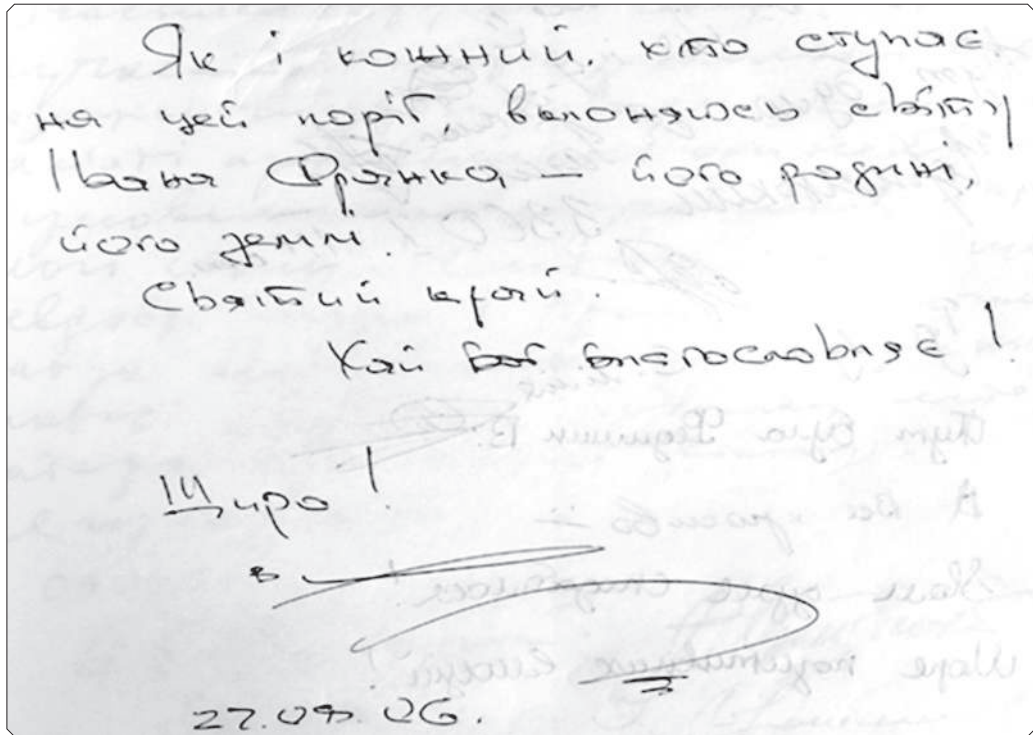 Як і кожний, хто ступає
на цей поріг, вклоняюсь світу
Івана Франка — його родині,
його землі.
Святий край.
Хай Бог благословляє!
Щиро!
27.08.06.